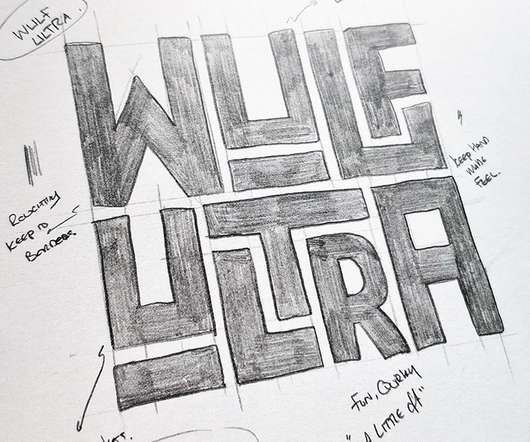 WULF
ULTRA
WULF
ULTRA
ROUGHLY
KEEP TO
BORDERS
KEEP HAND
MADE
FEEL.
FUN, QUIRKY
"A LITTLE OFF"